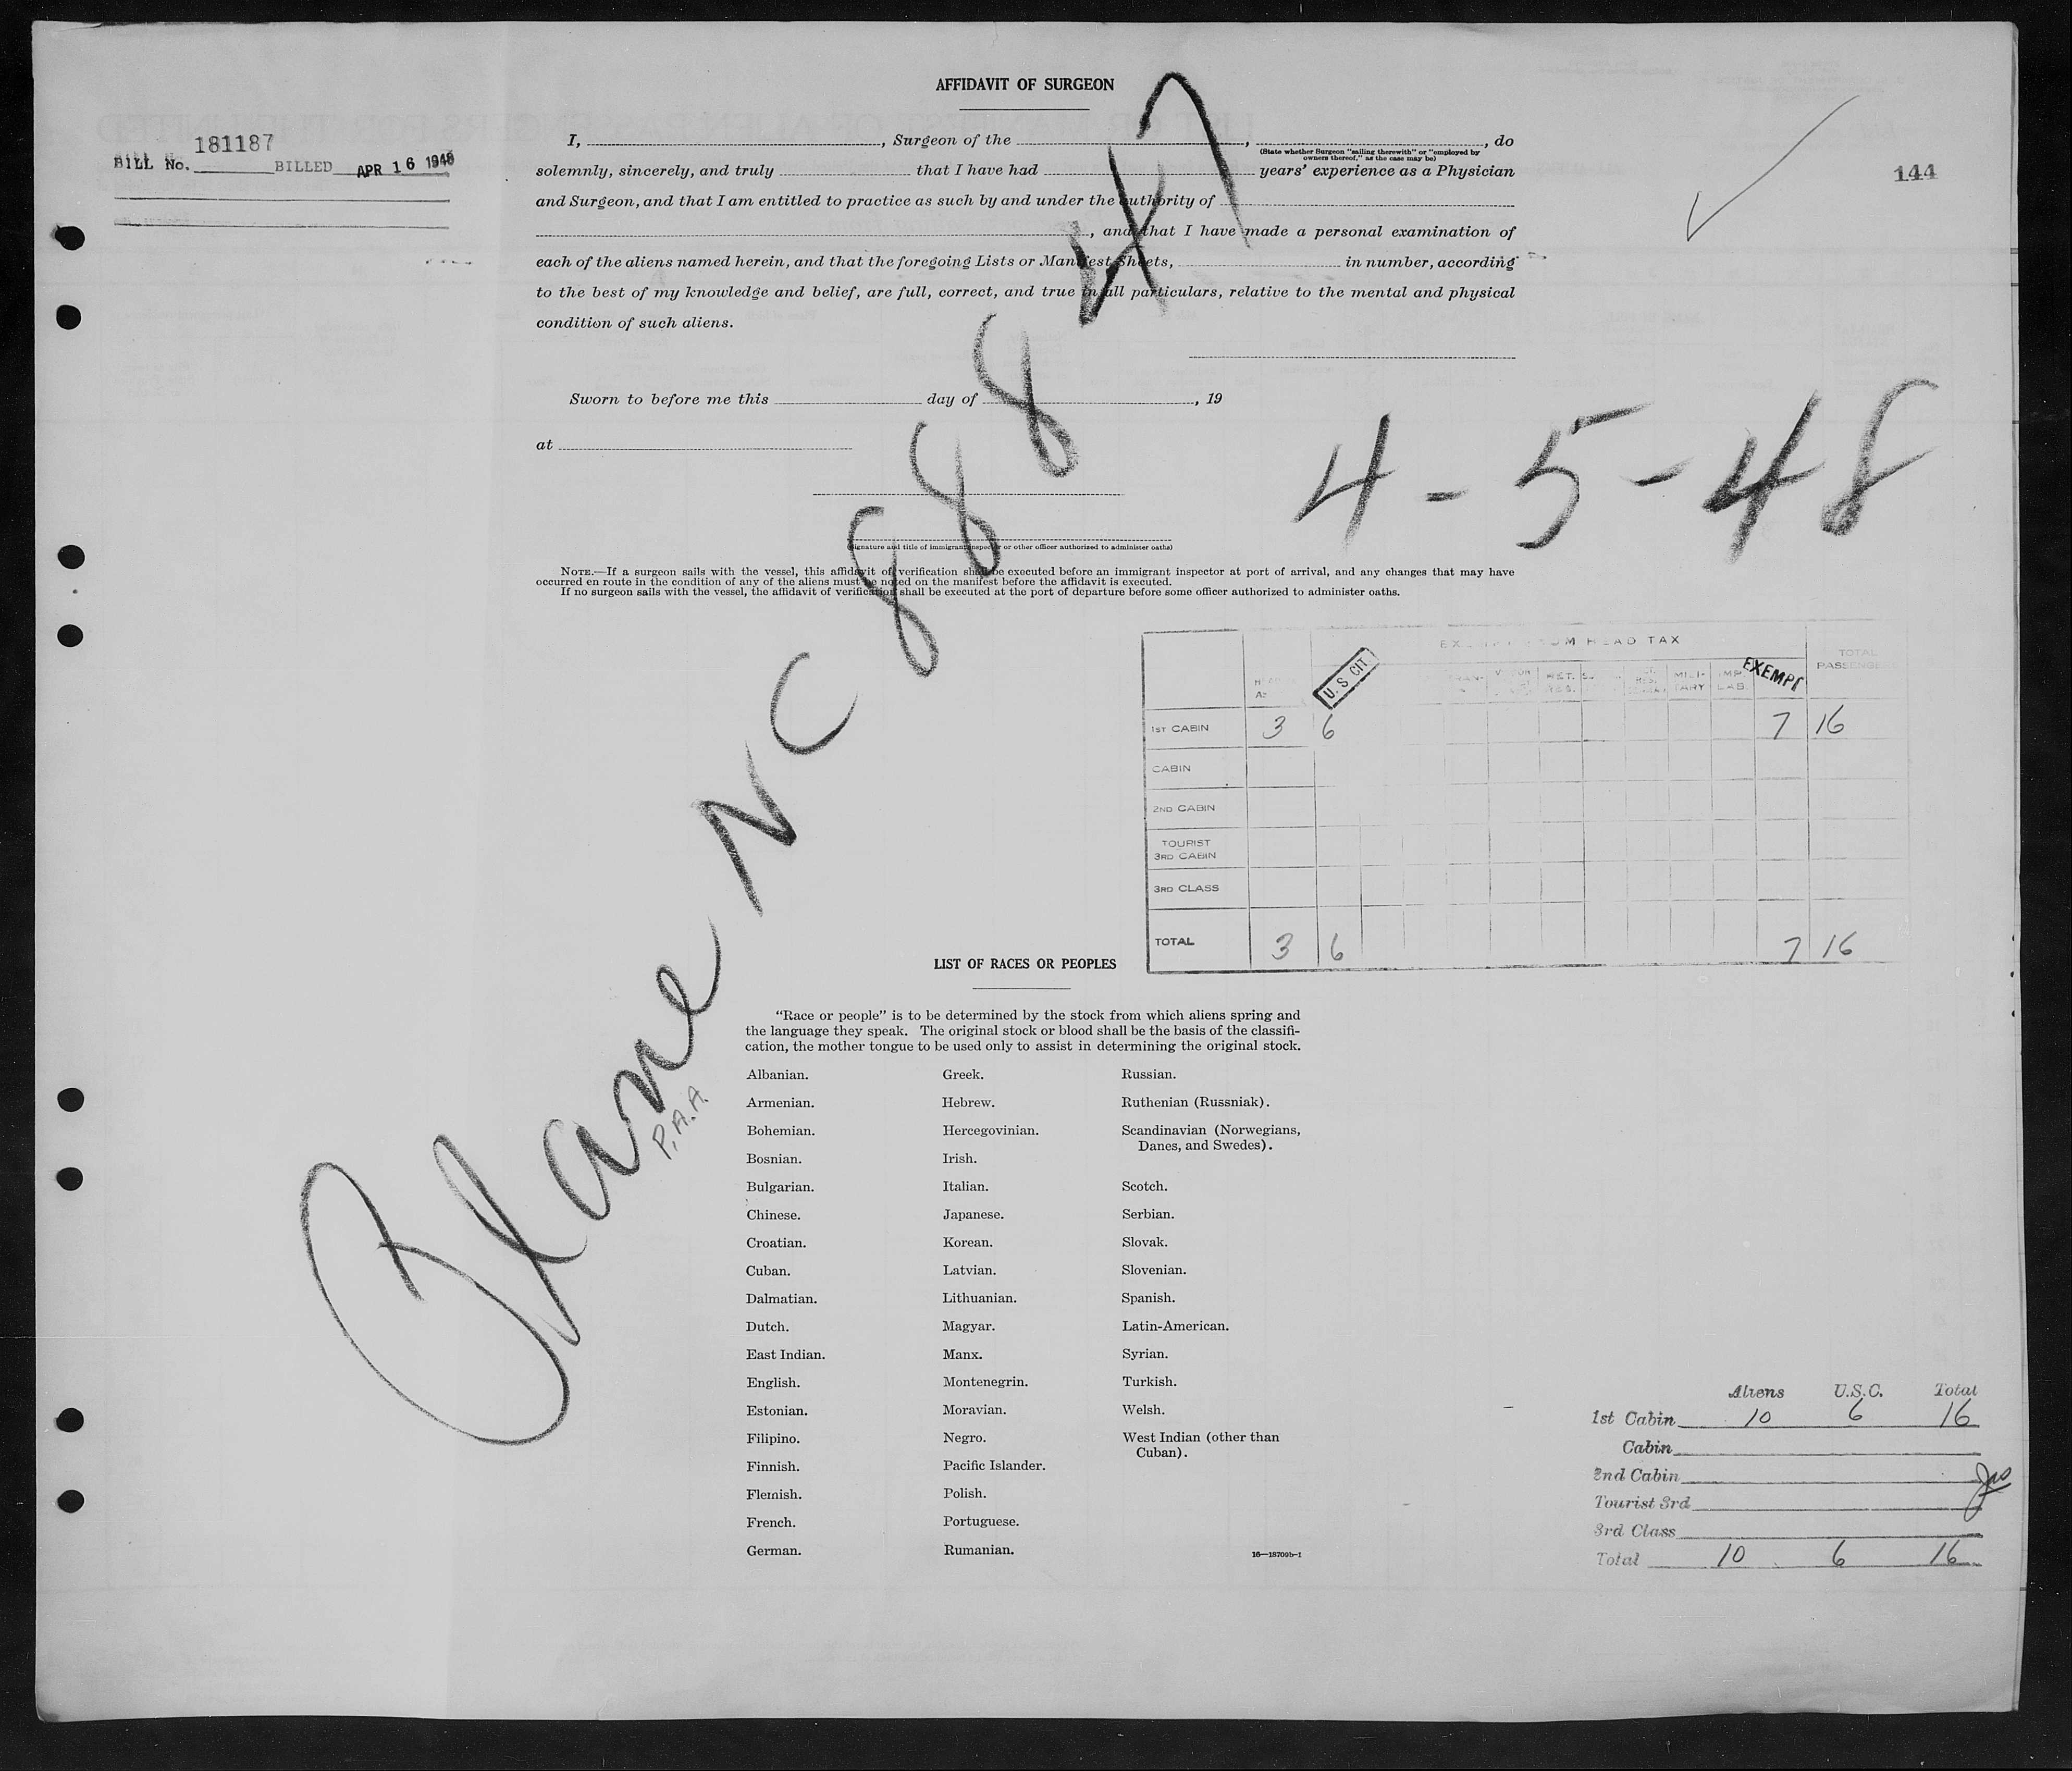 AFFIDAVIT OF SURGEON
181187
BILL No. BILLED APR 16 1948
144
I, , Surgeon of the , , do
(State whether Surgeon "sailing therewith" or "employed by
owners thereof," as the case may be)
solemnly, sincerely, and truly that I have had years' experience as a Physician
and Surgeon, and that I am entitled to practice as such by and under the authority of
, and that I have made a personal examination of
each of the aliens named herein, and that the foregoing Lists or Manifest Sheets, in number, according
to the best of my knowledge and belief, are full, correct, and true in all particulars, relative to the mental and physical
condition of such aliens.
Sworn to before me this day of , 19
at
4-5-48
(Signature and title of immigrant inspector or other officer authorized to administer oaths)
NOTE.—If a surgeon sails with the vessel, this affidavit of verification shall be executed before an immigrant inspector at port of arrival, and any changes that may have
occurred en route in the condition of any of the aliens must be noted on the manifest before the affidavit is executed.
If no surgeon sails with the vessel, the affidavit of verification shall be executed at the port of departure before some officer authorized to administer oaths.
Plane NC 88847
P.A.A.
HEAD TAX
U. S CIT
MILI-TARY
EXEMPT
TOTAL
1ST CABIN 3 6 7 16
CABIN
2ND CABIN
TOURIST
3RD CABIN
3RD CLASS
TOTAL 3 6 7 16
LIST OF RACES OR PEOPLES
"Race or people" is to be determined by the stock from which aliens spring and
the language they speak. The original stock or blood shall be the basis of the classifi-
cation, the mother tongue to be used only to assist in determining the original stock.
Albanian. Greek. Russian.
Armenian. Hebrew. Ruthenian (Russniak).
Bohemian. Hercegovinian. Scandinavian (Norwegians,
Danes, and Swedes).
Bosnian. Irish.
Bulgarian. Italian. Scotch.
Chinese. Japanese. Serbian.
Croatian. Korean. Slovak.
Cuban. Latvian. Slovenian.
Dalmatian. Lithuanian. Spanish.
Dutch. Magyar. Latin-American.
East Indian. Manx. Syrian.
English. Montenegrin. Turkish.
Estonian. Moravian. Welsh.
Filipino. Negro. West Indian (other than
Cuban).
Finnish. Pacific Islander.
Flemish. Polish.
French. Portuguese.
German. Rumanian.
16—18709b-1
Aliens U.S.C. Total
1st Cabin 10 6 16
Cabin
2nd Cabin
Tourist 3rd
3rd Class
Total 10 6 16